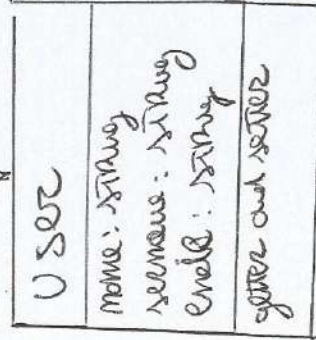 User
name: string
surname: string
email: string
getter and setter